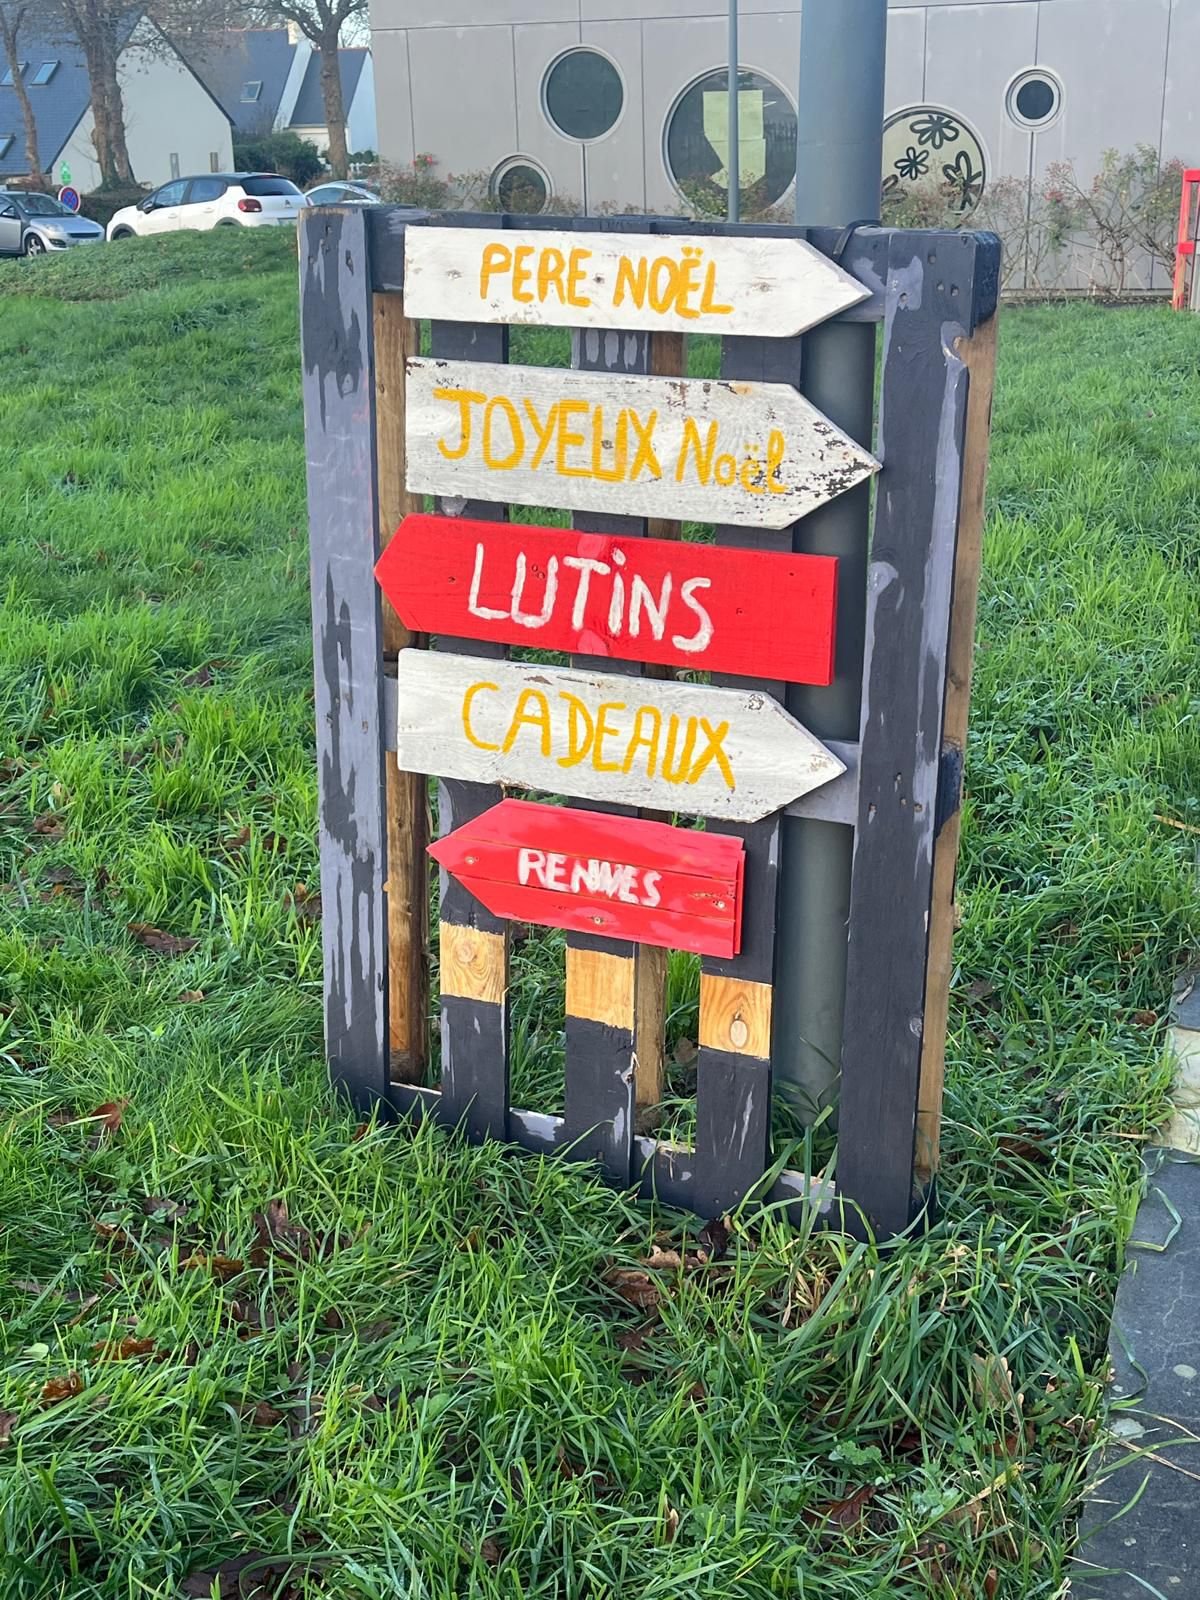 PERE NOËL
JOYEUX Noël
LUTiNS
CADEAUX
RENNES